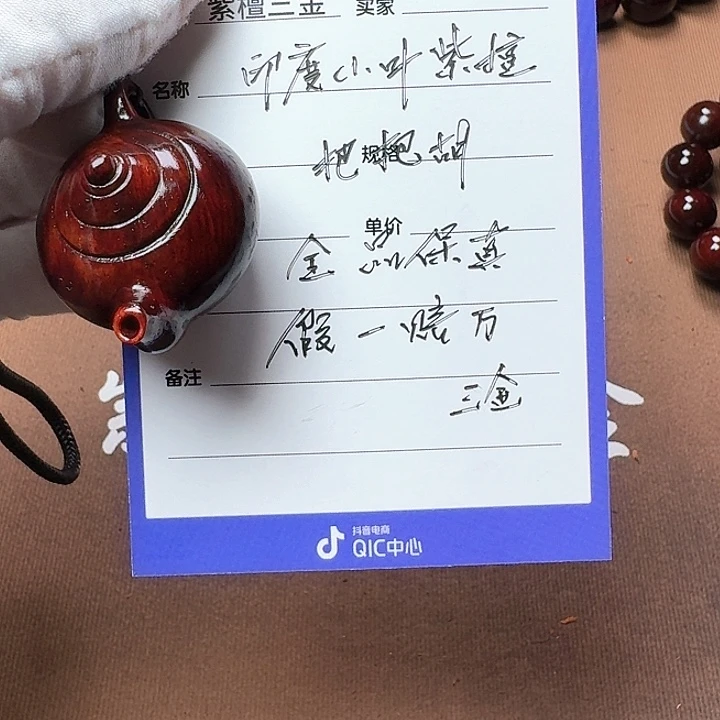 紫檀三金 卖家
名称 印度小叶紫檀
规格 把把胡
单价
全品保真
假一赔万
备注
三金
抖音电商
QIC中心
金